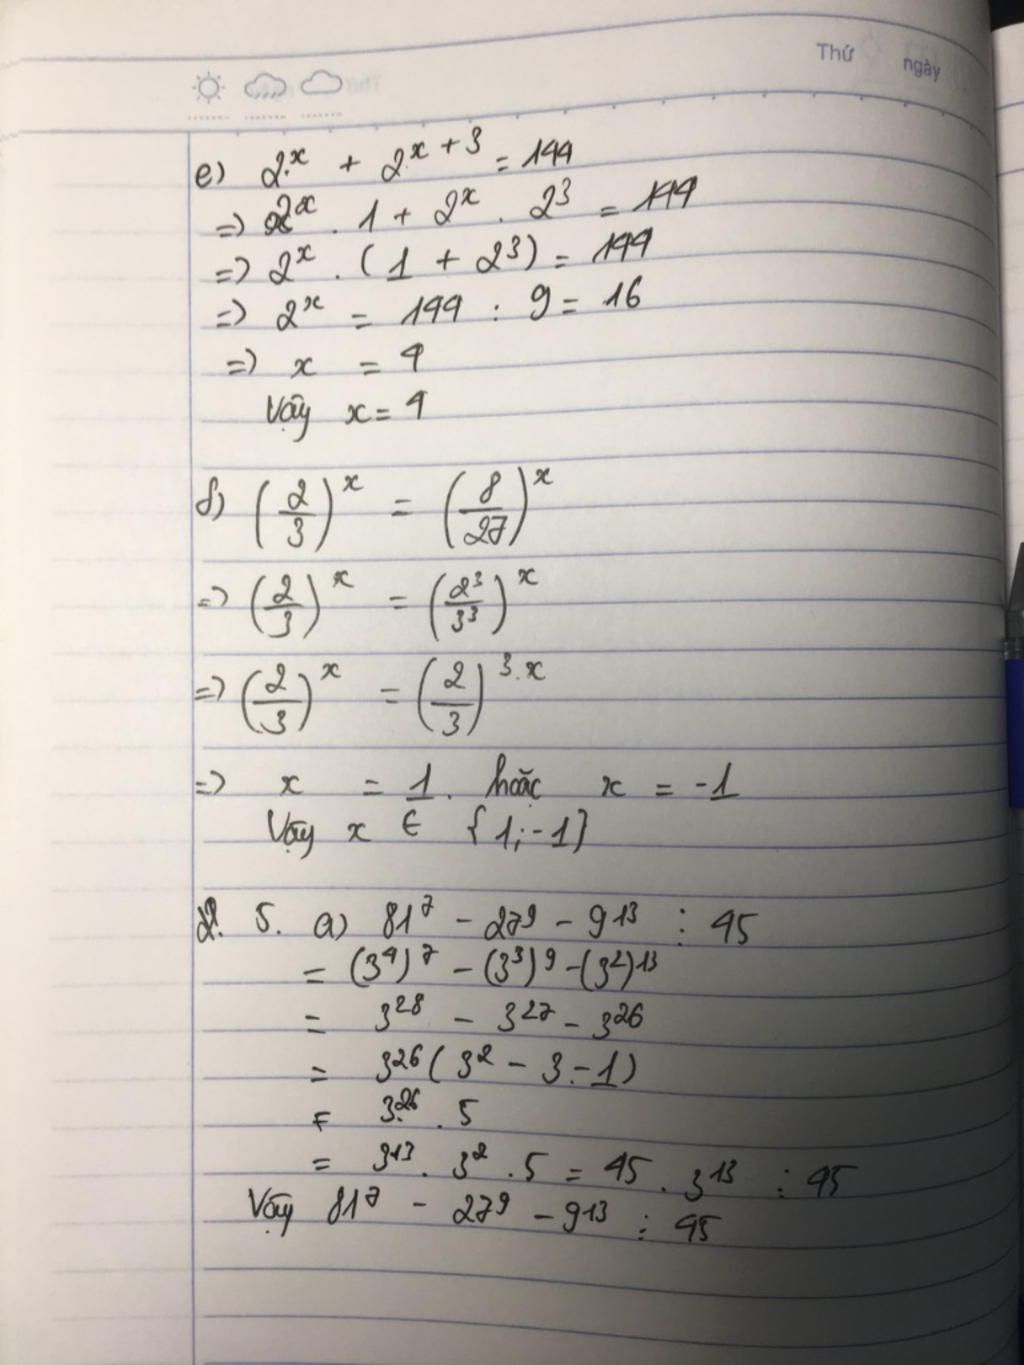 Thứ ngày
e) 2^x + 2^{x+3} = 144
=> 2^x . 1 + 2^x . 2^3 = 144
=> 2^x . (1 + 2^3) = 144
=> 2^x = 144 : 9 = 16
=> x = 4
Vậy x = 4
f) (2/3)^x = (8/27)^x
=> (2/3)^x = (2^3/3^3)^x
=> (2/3)^x = (2/3)^{3.x}
=> x = 1. hoặc x = -1
Vậy x ∈ {1; -1}
2. 5. a) 81^7 - 27^9 - 9^13 ⋮ 45
= (3^4)^7 - (3^3)^9 - (3^2)^13
= 3^28 - 3^27 - 3^26
= 3^26 (3^2 - 3 - 1)
= 3^26 . 5
= 3^13 . 3^2 . 5 = 45 . 3^13 ⋮ 45
Vậy 81^7 - 27^9 - 9^13 ⋮ 45